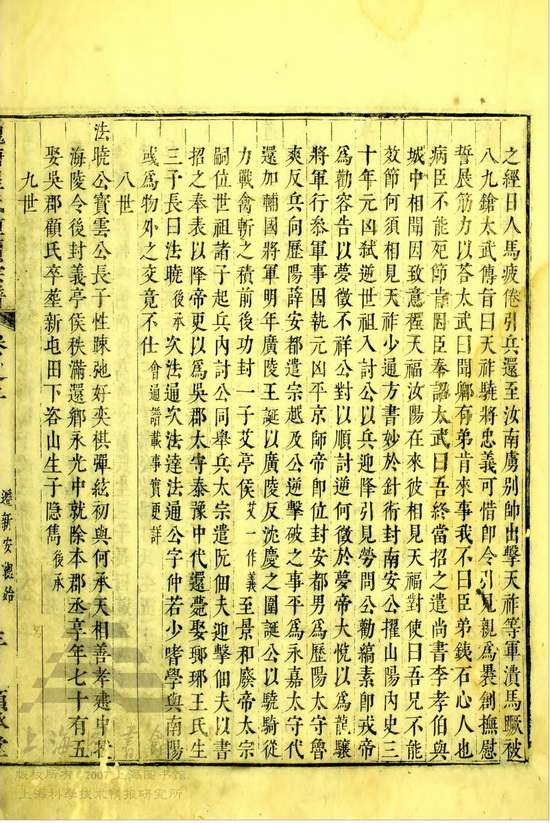 之經日人馬疲倦引兵還至汝南虜别帥出擊天祚等軍潰馬蹶被
八九鎗太武傳旨曰天祚驍將忠義可惜即令引見親為褁創撫慰
誓展筋力以荅太武曰聞卿有弟肯來事我不曰臣弟鉄石心人也
病臣不能死節肯困臣奉詔太武曰吾終當招之遣尚書李孝伯與
城中相聞因致意天福汝陽在來彼相見天福對使曰吾兄不能
效節何須相見天祚少通方書妙於針術封南安公擢山陽内史三
十年元凶弑逆世祖入討公以兵迎降引見勞問公勸縞素即戎帝
為勸容告以夢徵不祥公對以順討逆何徵於夢帝大悦以為龍驤
將軍行叅軍事因執元凶平京師帝即位封安都男為歷陽太守魯
爽反兵向歷陽薛安都遣宗越及公逆擊破之事平為永嘉太守代
還加輔國將軍明年廣陵王誕以廣陵反沈慶之圍誕公以驍騎從
力戰禽斬之積前後功封一子艾亭侯艾一作義至景和廢帝太宗
嗣位世祖諸子起兵内討公同舉兵太宗遣阮佃夫迎擊佃夫以書
招之奉表以降帝更以為吳郡太守泰豫中代還薨娶瑯琊王氏生
三子長曰法曉後承次法通次法達法通公字仲若少嗜學與南陽
或為物外之交竟不仕會通譜載事實更詳
八世
法曉公實雲公長子性踈弛好奕棋彈絃初與何承天相善孝建中授
海陵令後封義亭侯秩滿還鄉永光中就除本郡丞享年七十有五
娶吳郡顧氏卒塟新屯田下峇山生子隐雋後承
九世
遷新安總始
上海圖書館
版权所有 2007 上海图书馆
上海科学技术情报研究所